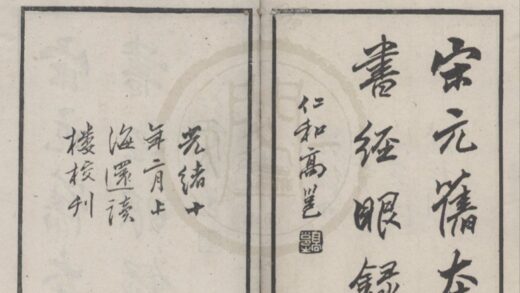 宋元舊本
書經眼錄
仁和高邕
光緒十
年二月上
海還讀
樓校刊